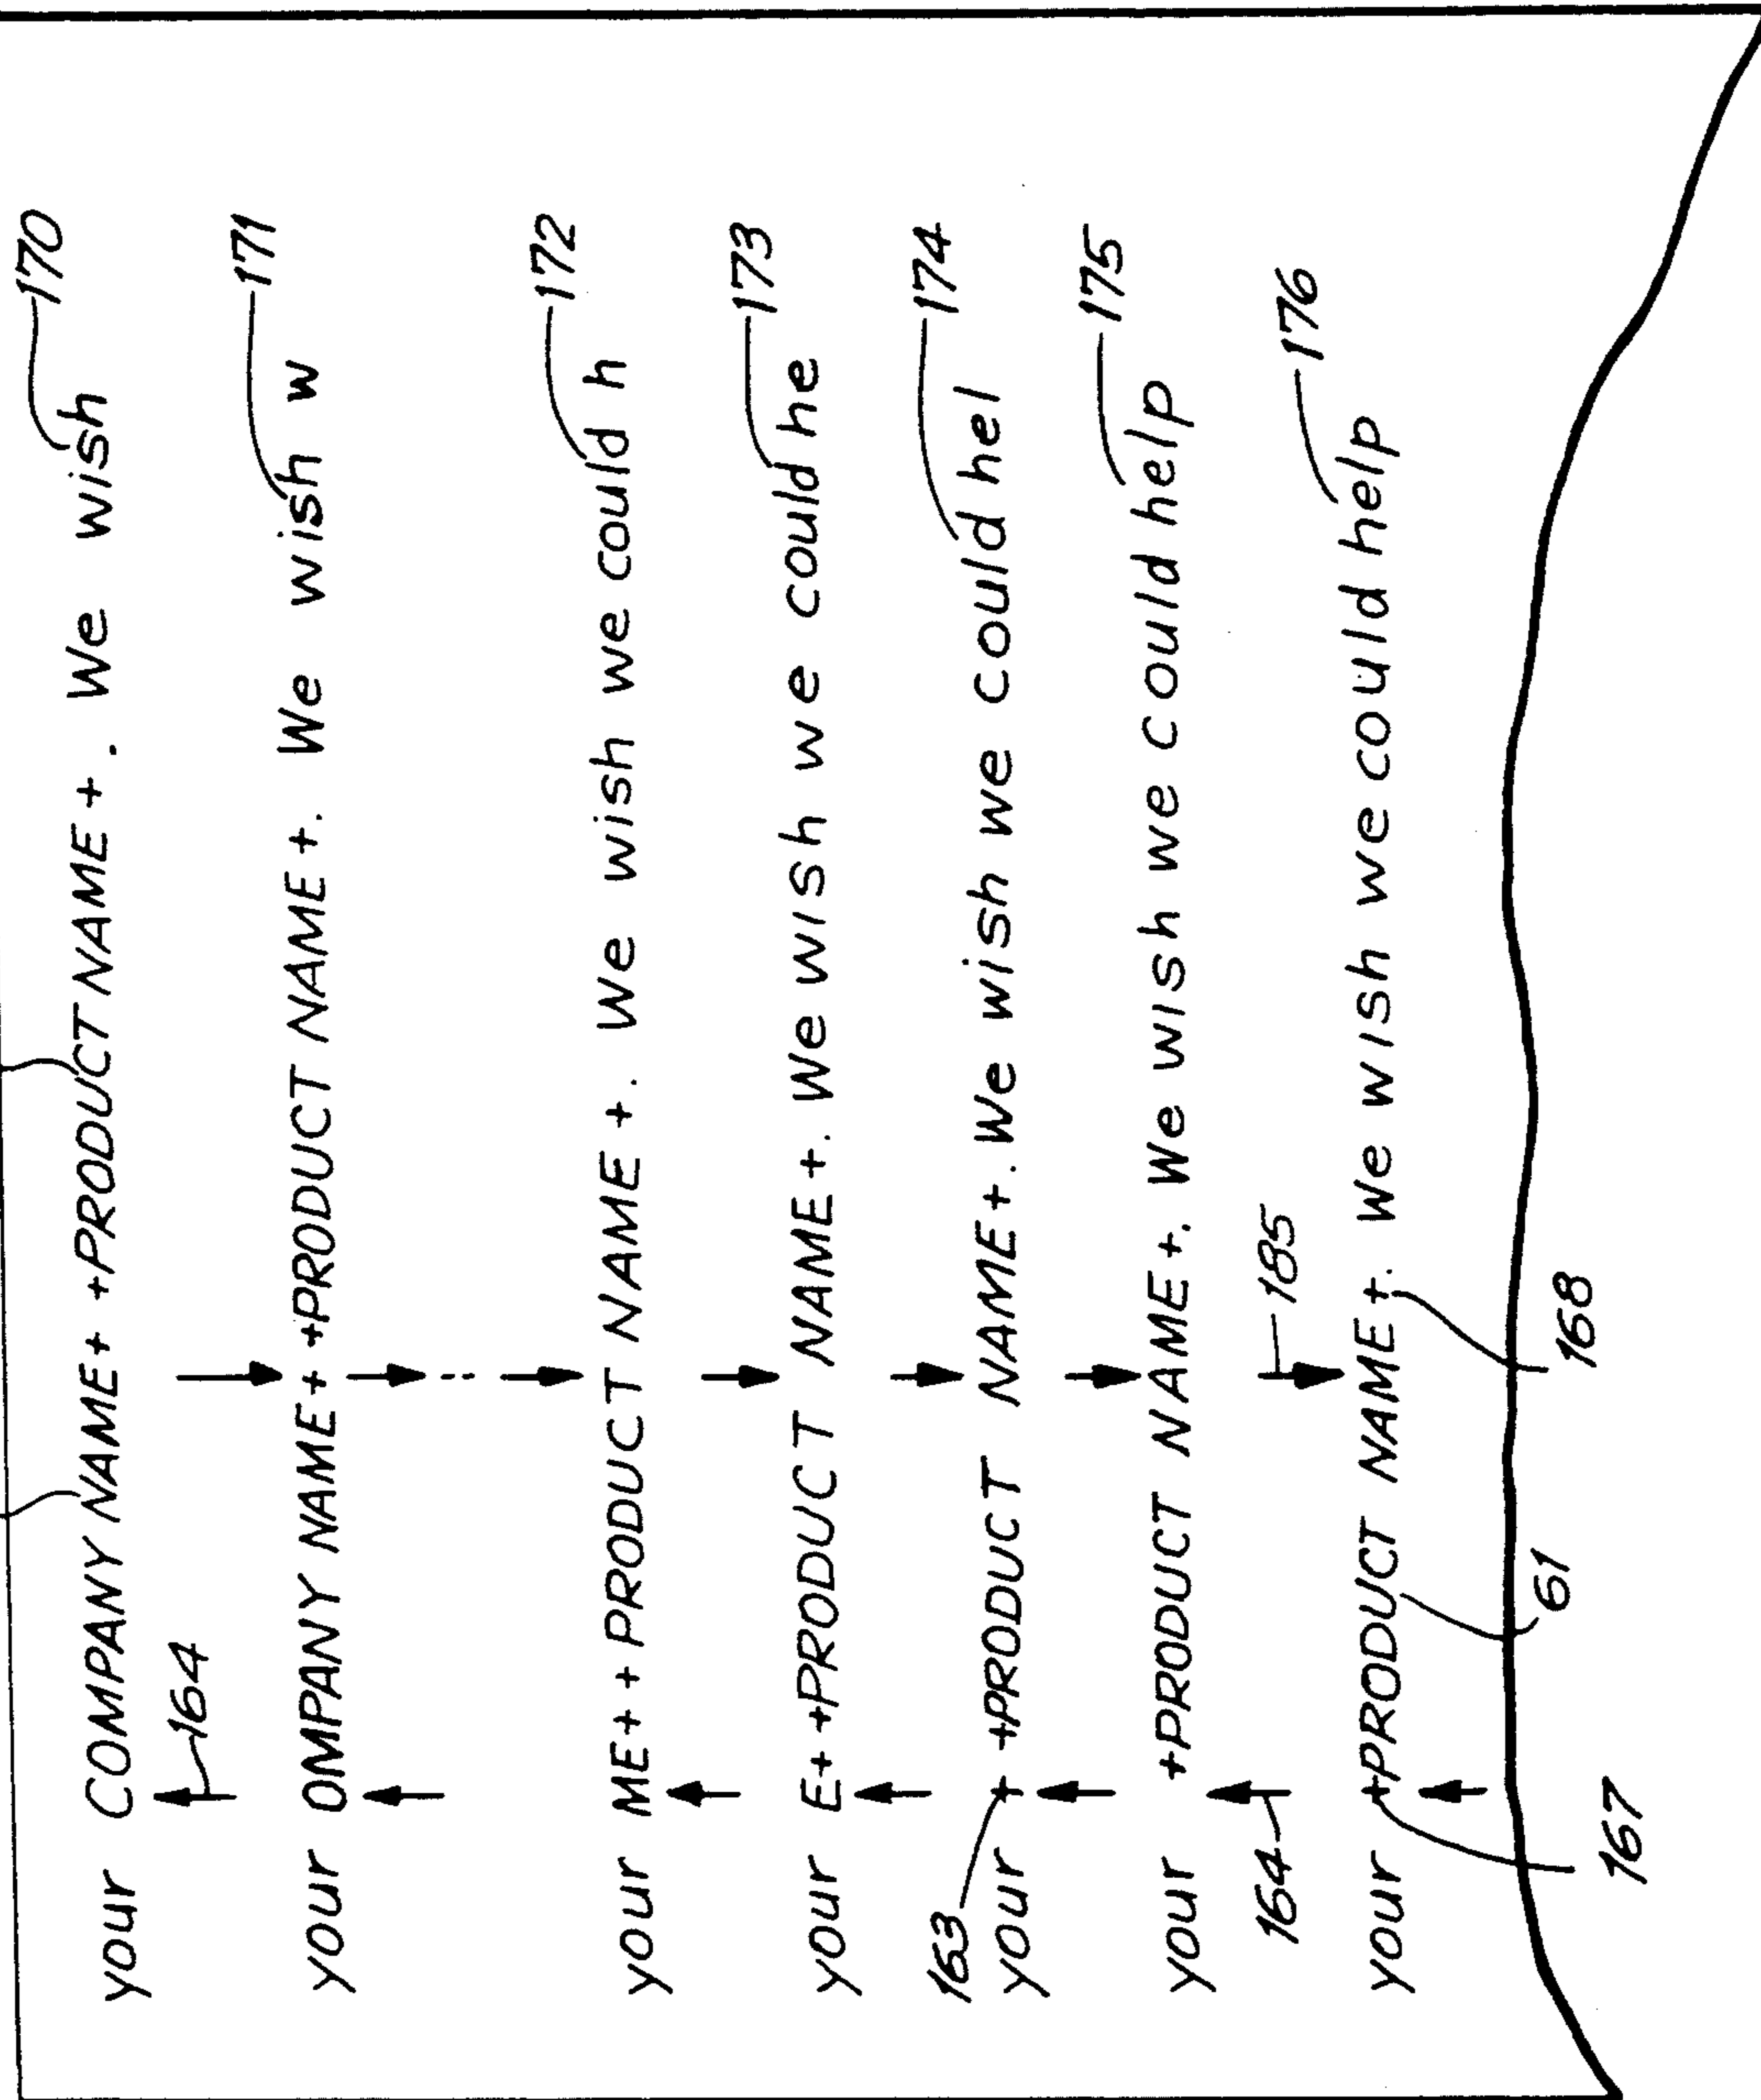 your COMPANY NAME+ +PRODUCT NAME+. We wish 170
164
your OMPANY NAME+ +PRODUCT NAME+. We wish w 171
your ME+ +PRODUCT NAME+. We wish we could h 172
your E+ +PRODUCT NAME+. We wish we could he 173
163
your + +PRODUCT NAME+. We wish we could hel 174
your +PRODUCT NAME+. We wish we could help 175
164 185
your +PRODUCT NAME+. We wish we could help 176
167 61 168